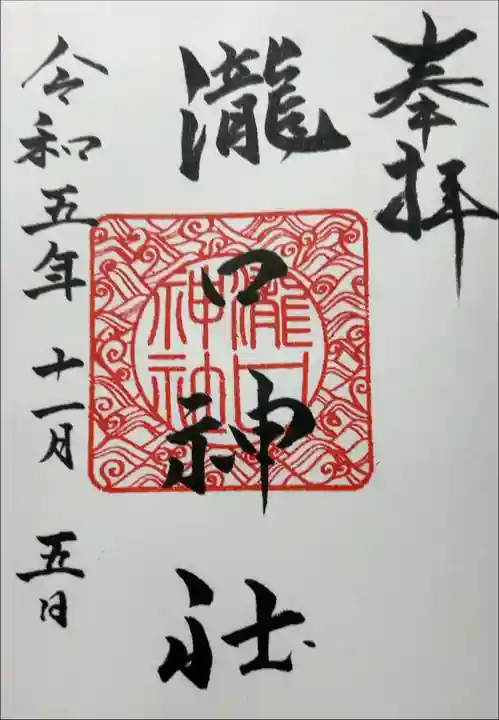 奉拝
瀧口神社
瀧口
神社
令和五年十一月五日